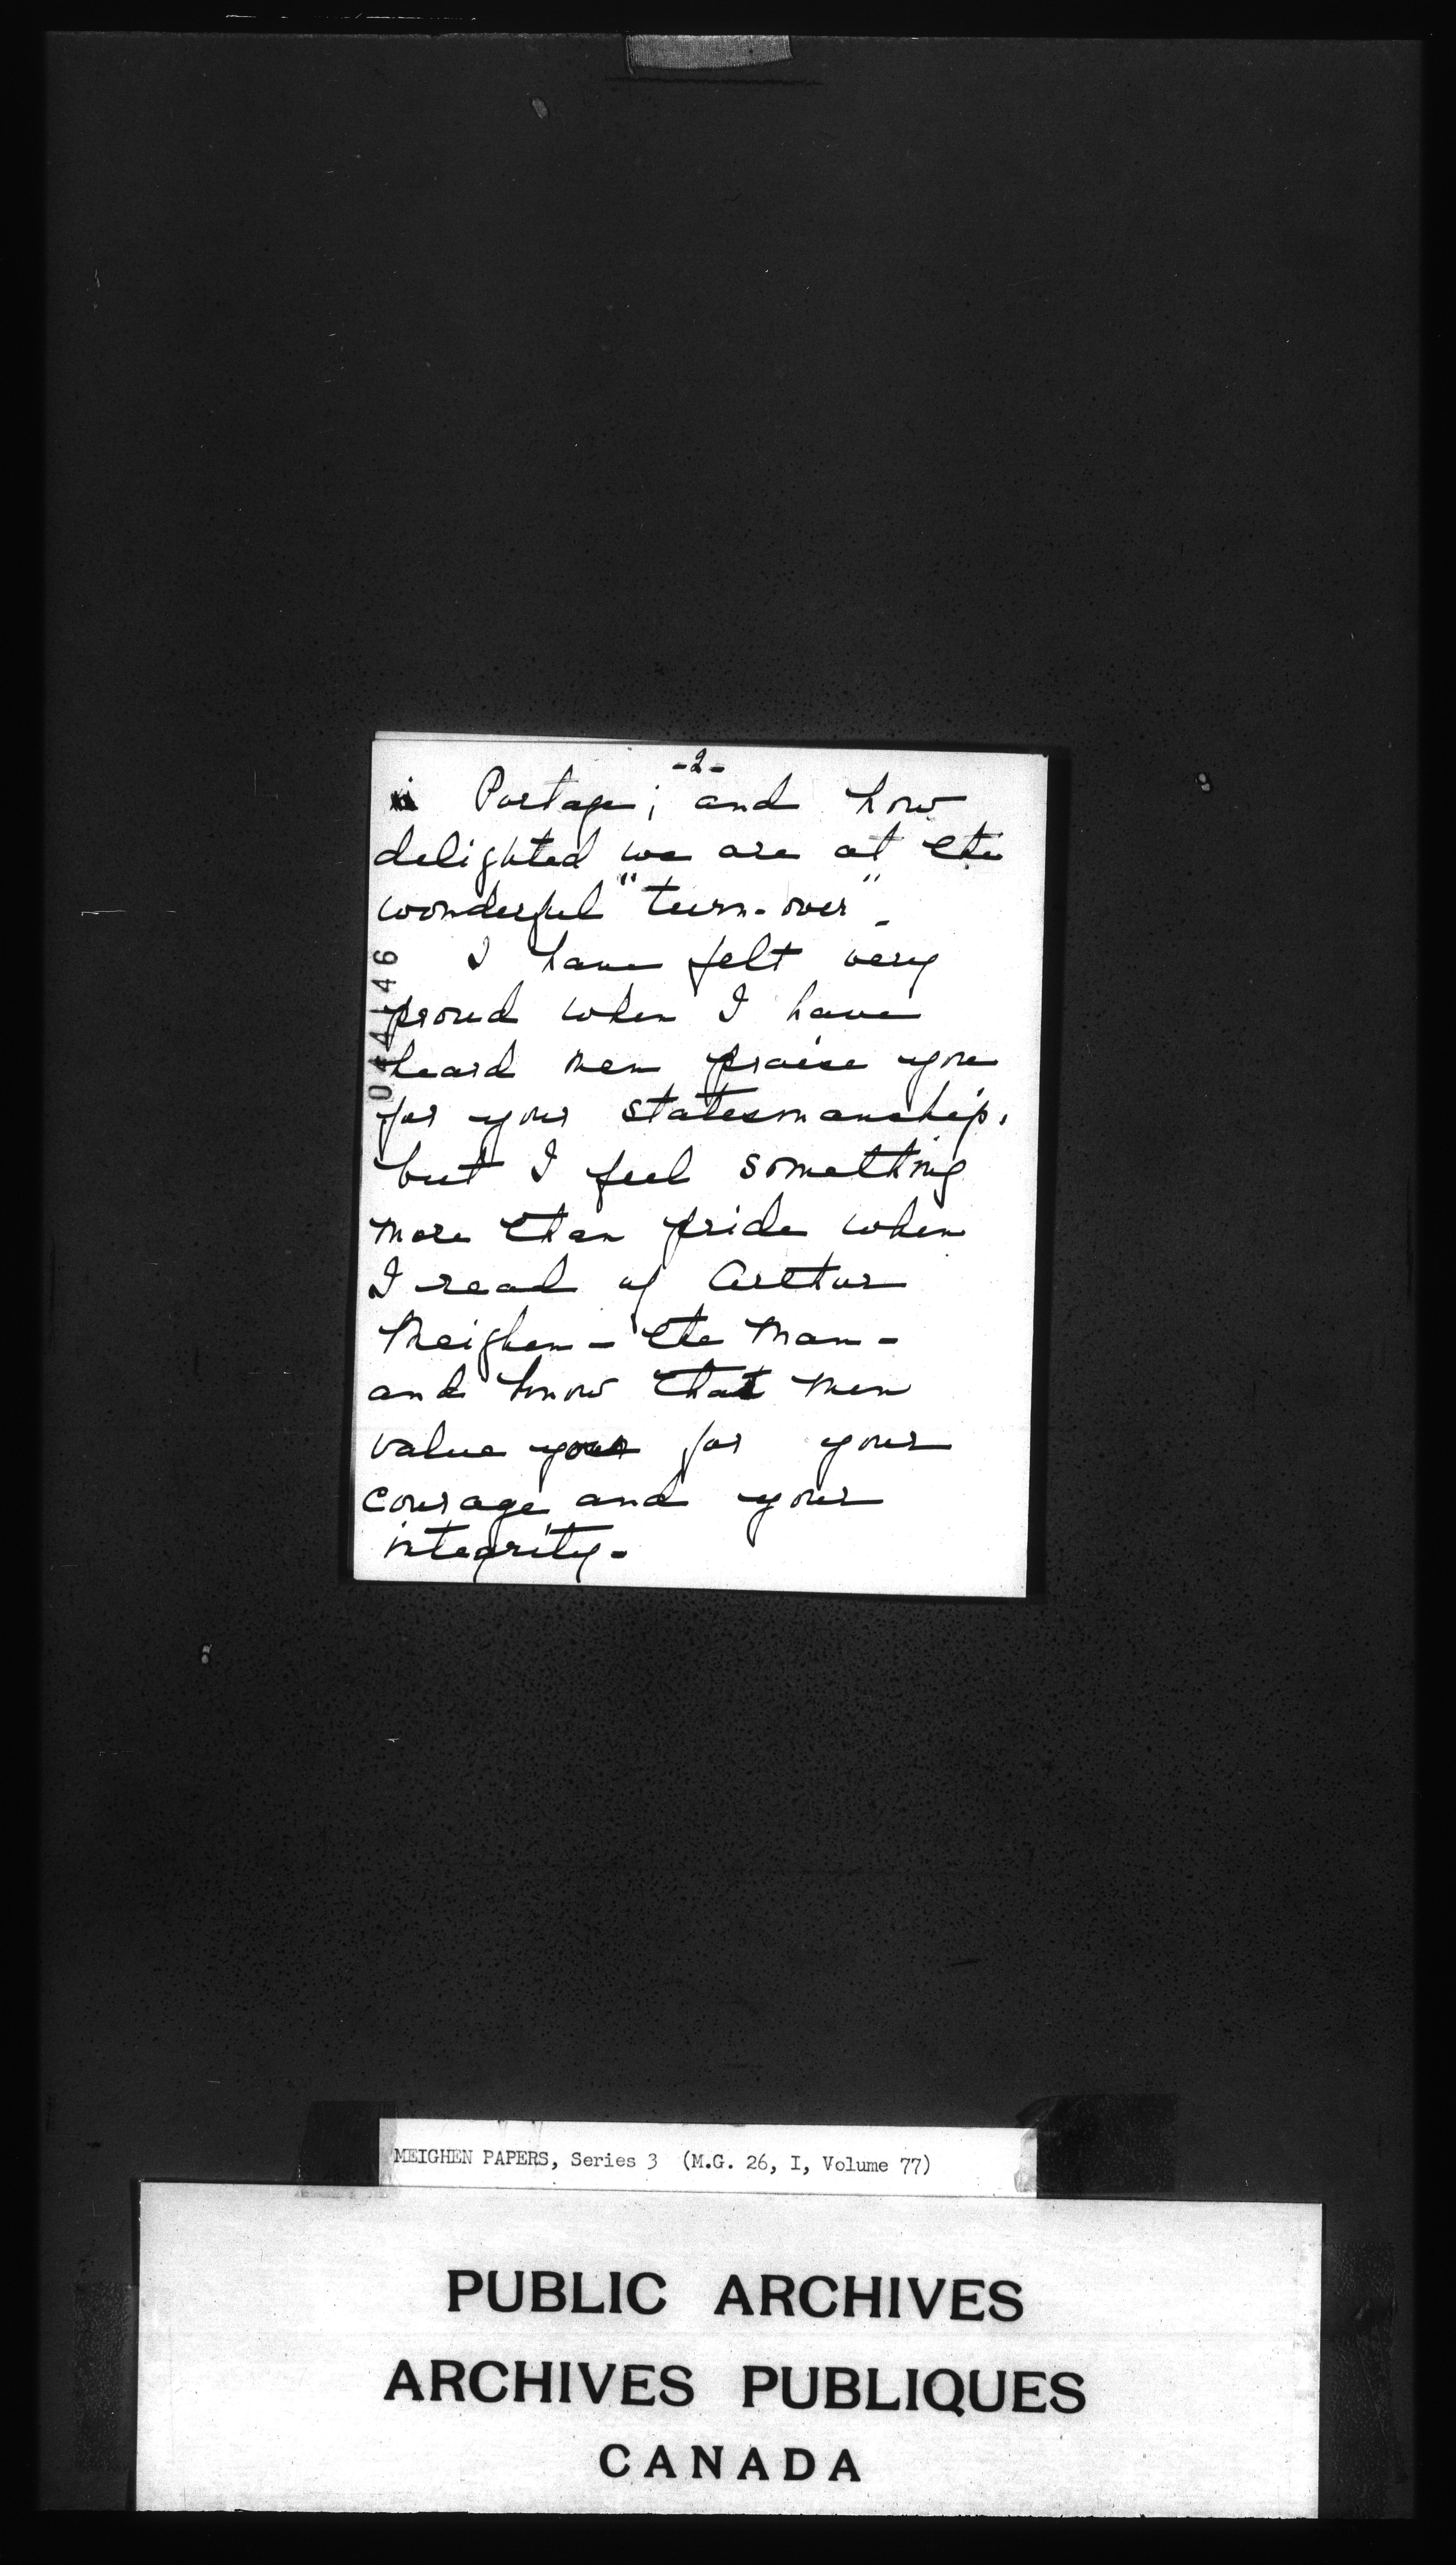 -2-
in Portage; and how
delighted we are at the
wonderful "turn-over".
I have felt very
proud when I have
heard men praise you
for your statesmanship,
but I feel something
more than pride when
I read of Arthur
Meighen - the man -
and know that men
value you for your
courage and your
integrity.
044146
MEIGHEN PAPERS, Series 3 (M.G. 26, I, Volume 77)
PUBLIC ARCHIVES
ARCHIVES PUBLIQUES
CANADA